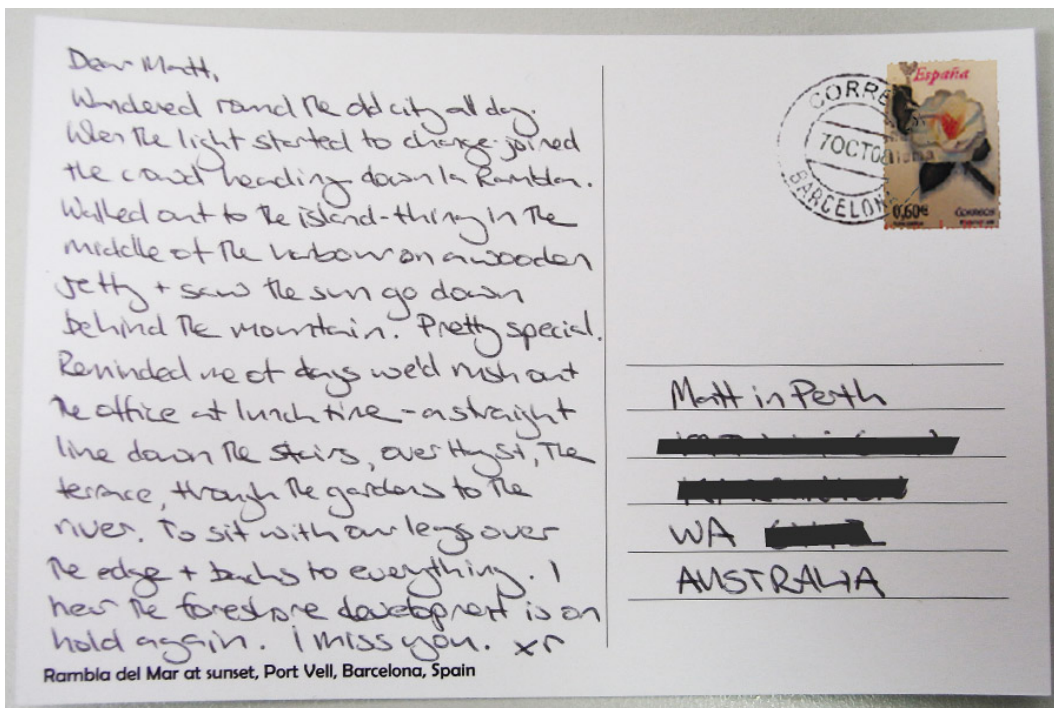 Dear Matt,
Wandered round the old city all day.
When the light started to change joined
the crowd heading down la Ramblas.
Walked out to the island-thing in the
middle of the harbour on a wooden
jetty + saw the sun go down
behind the mountain. Pretty special.
Reminded me of days we'd rush out
the office at lunch time - a straight
line down the stairs, over Hay St, the
terrace, through the gardens to the
river. To sit with our legs over
the edge + backs to everything. I
hear the foreshore development is on
hold again. I miss you. xr
Rambla del Mar at sunset, Port Vell, Barcelona, Spain
CORRE
7 OCT 08
BARCELON
España
0,60€
CORREOS
Matt in Perth
WA
AUSTRALIA